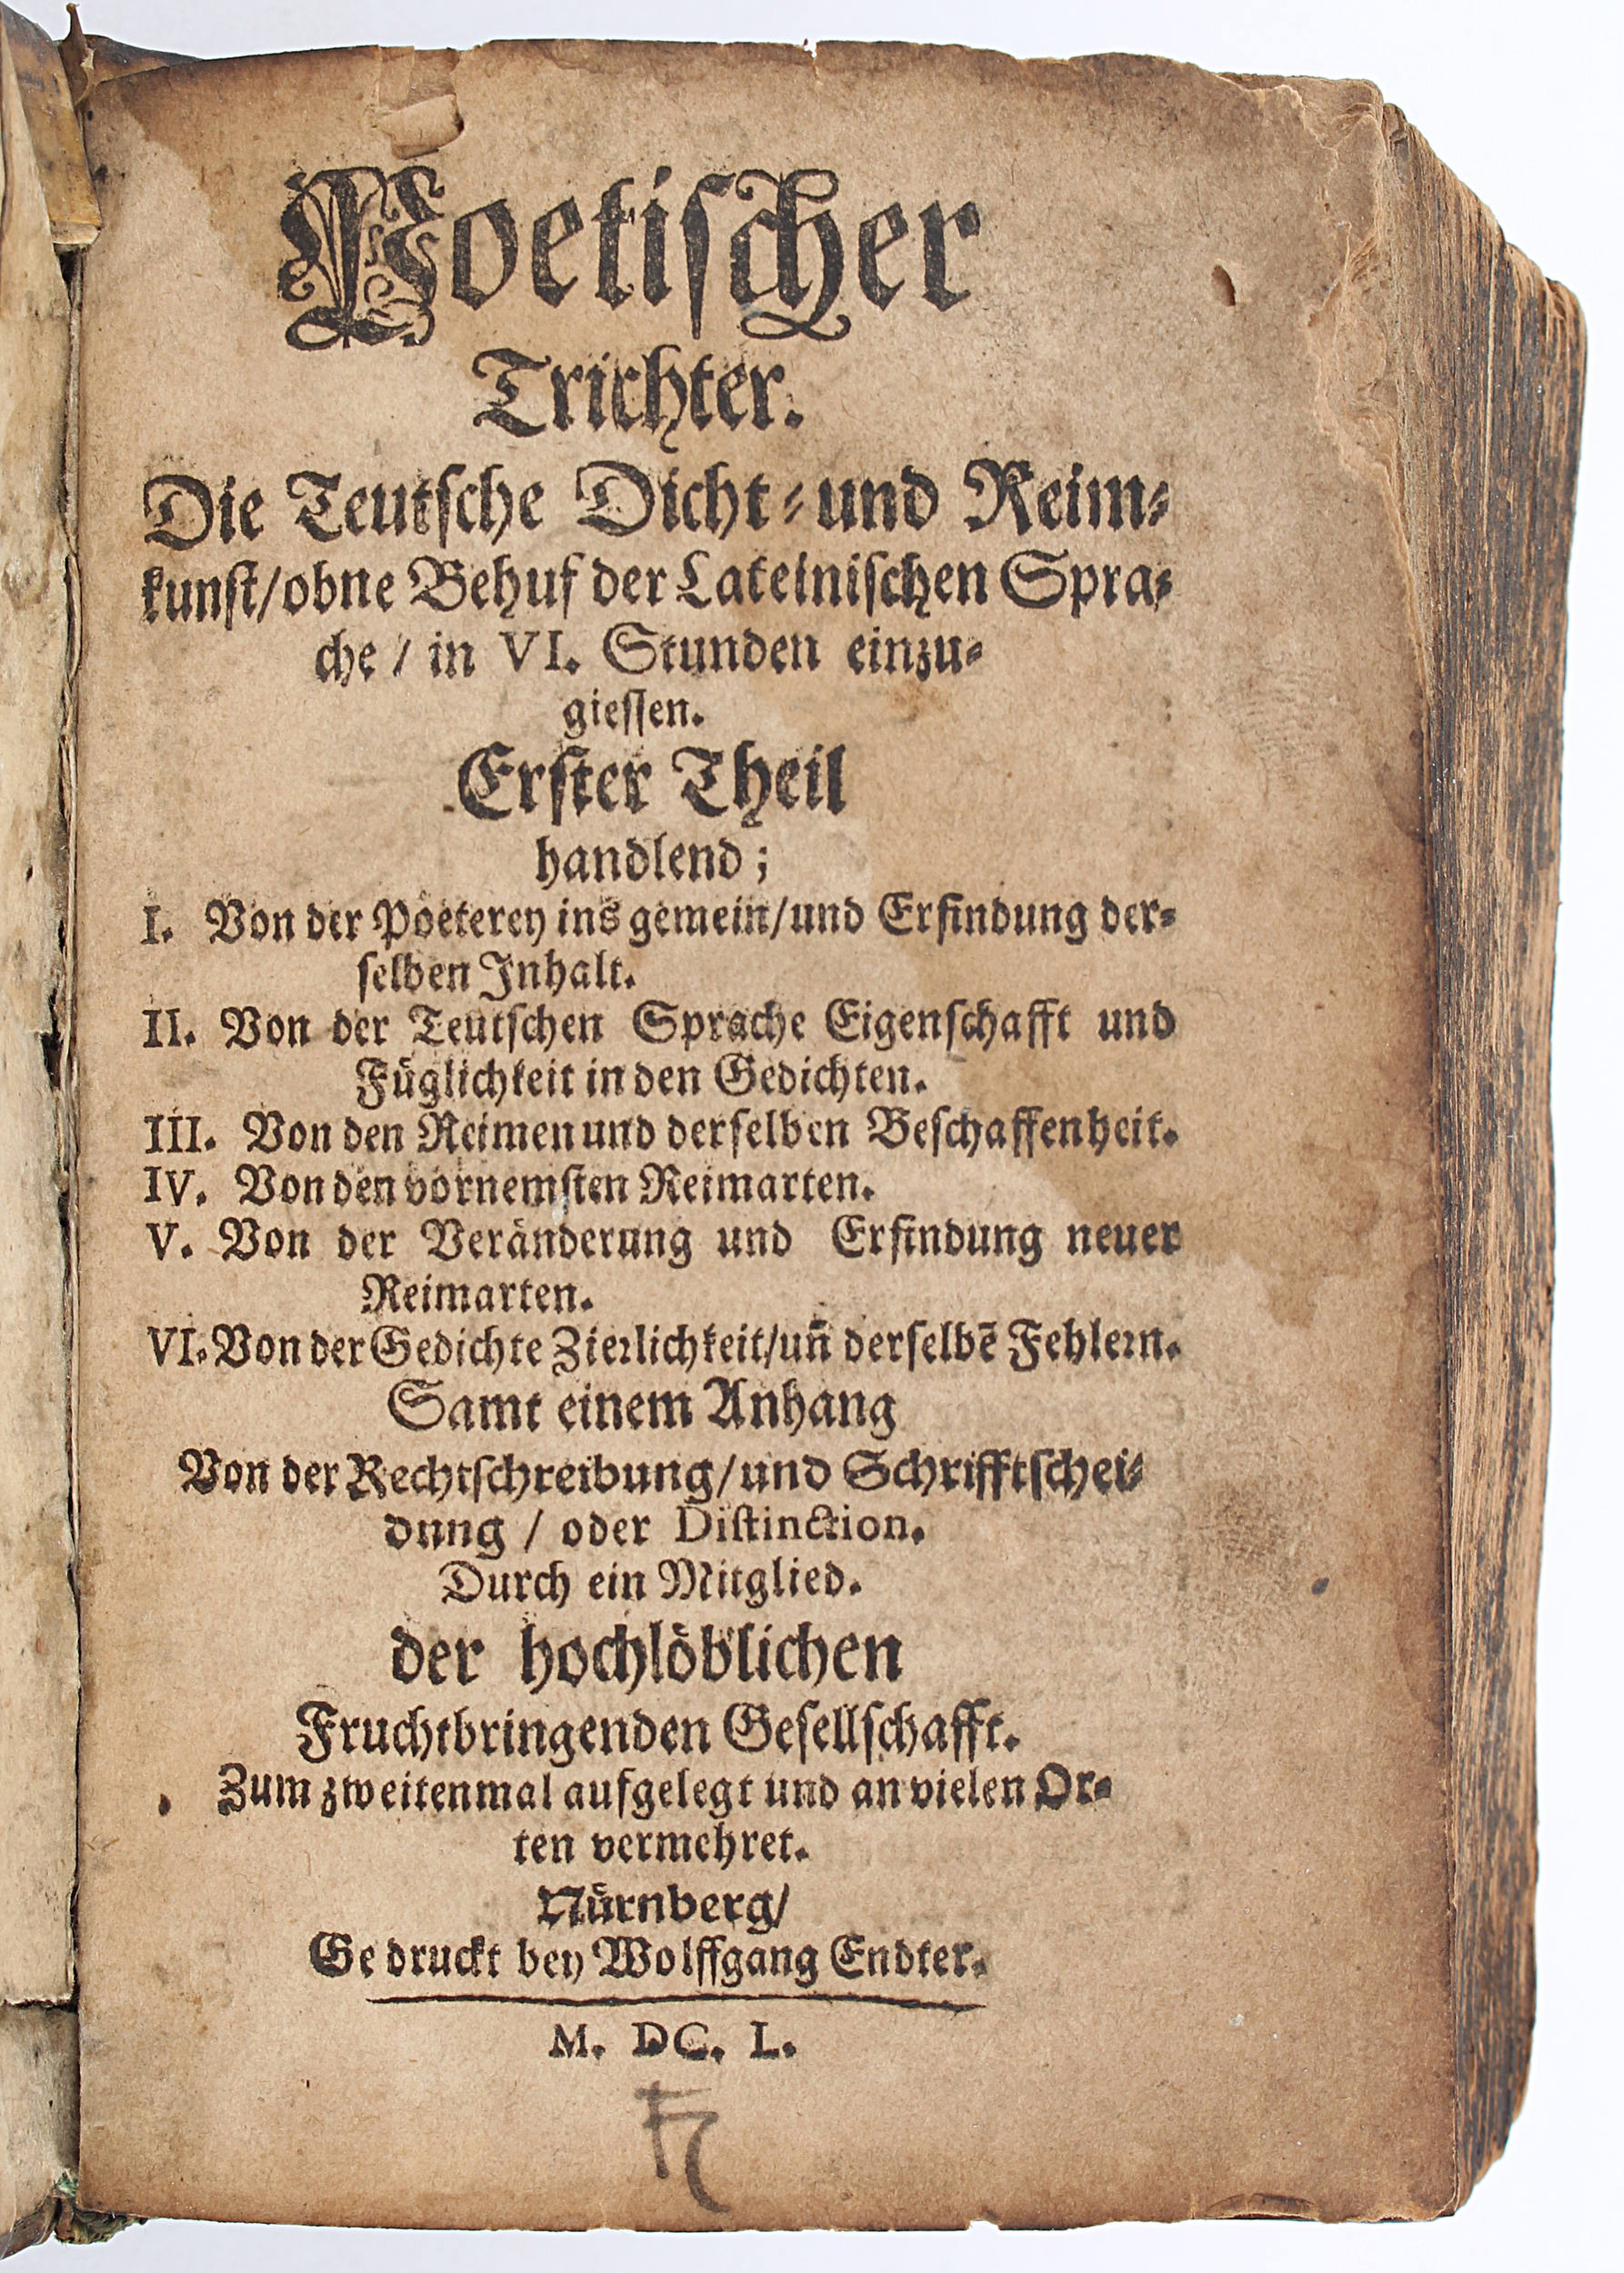 Poetischer
Trichter.
Die Teutsche Dicht- und Reim-
kunst/ohne Behuf der Lateinischen Spra-
che / in VI. Stunden einzu-
giessen.
Erster Theil
handlend;
I. Von der Poeterey ins gemein/und Erfindung der-
selben Inhalt.
II. Von der Teutschen Sprache Eigenschafft und
Füglichkeit in den Gedichten.
III. Von den Reimen und derselben Beschaffenheit.
IV. Von den vornemsten Reimarten.
V. Von der Veränderung und Erfindung neuer
Reimarten.
VI. Von der Gedichte Zierlichkeit/uñ derselbẽ Fehlern.
Samt einem Anhang
Von der Rechtschreibung/und Schrifftschei-
dung / oder Distinction.
Durch ein Mitglied.
der hochlöblichen
Fruchtbringenden Gesellschafft.
Zum zweitenmal aufgelegt und an vielen Or-
ten vermehret.
Nürnberg/
Gedruckt bey Wolffgang Endter.
M. DC. L.